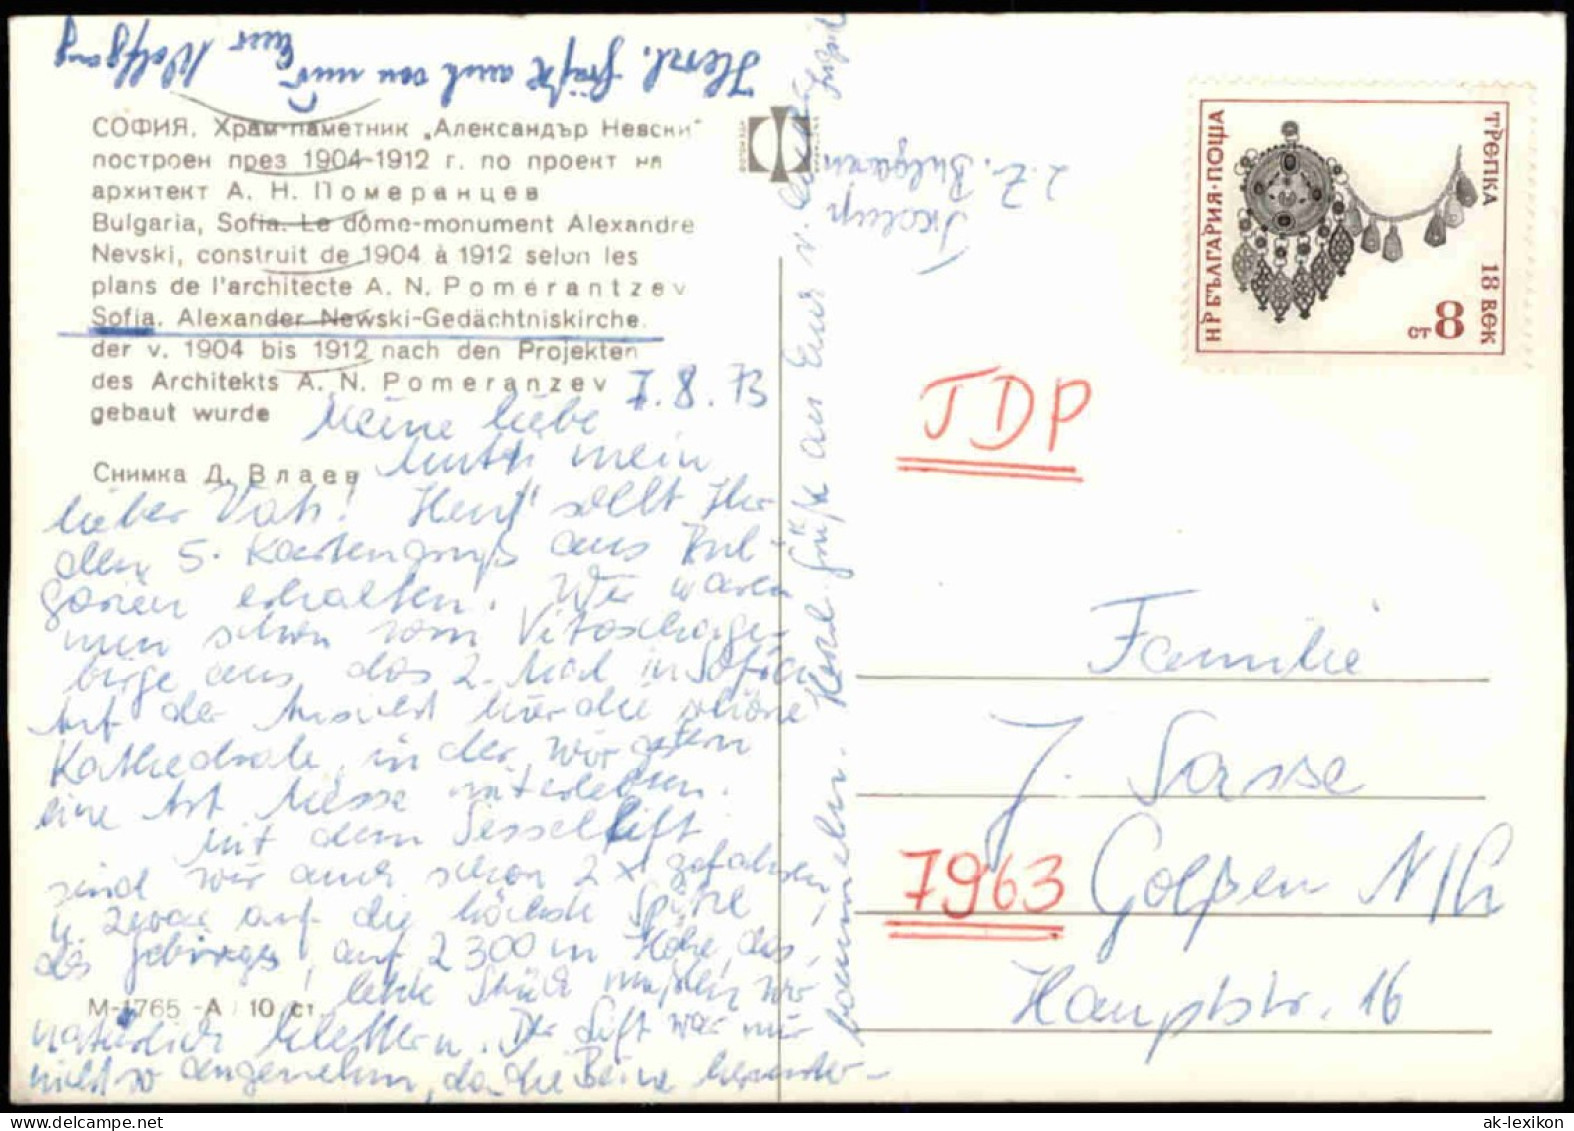 Herzl. Grüße auch von mir
Euer Wolfgang
СОФИЯ. Храм-паметник „Александър Невски"
построен през 1904-1912 г. по проект на
архитект А. Н. Померанцев
Bulgaria, Sofia. Le dôme-monument Alexandre
Nevski, construit de 1904 à 1912 selon les
plans de l'architecte A. N. Pomérantzev
Sofia. Alexander Newski-Gedächtniskirche.
der v. 1904 bis 1912 nach den Projekten
des Architekts A. N. Pomeranzev
gebaut wurde
Снимка Д. Влаев
7.8.73
Meine liebe
Mutti mein
lieber Vati! Heut sollt Ihr
den 5. Kartengruß aus Bul-
garien erhalten. Wir waren
nun schon vom Vitoschage-
birge aus das 2. Mal in Sofia
Auf der Ansicht hier die schöne
Kathedrale, in der wir gestern
eine Art Messe miterlebten.
Mit dem Sessellift
sind wir auch schon 2 x gefahren,
u. zwar auf die höchste Spitze
des Gebirges auf 2300 m Höhe, das
letzte Stück mußten wir
natürlich klettern. Der Lift war nur
nicht so angenehm, da die Beine herunter-
baumeln. Herzl. Grüße an Euch v.
М-1765-А 10 ст.
z. Z. Bulgarien
НР БЪЛГАРИЯ·ПОЩА
ТРЕПКА 18 ВЕК
8 СТ
TDP
Familie
J. Sasse
7963 Golßen N/L
Hauptstr. 16
ak-lexikon